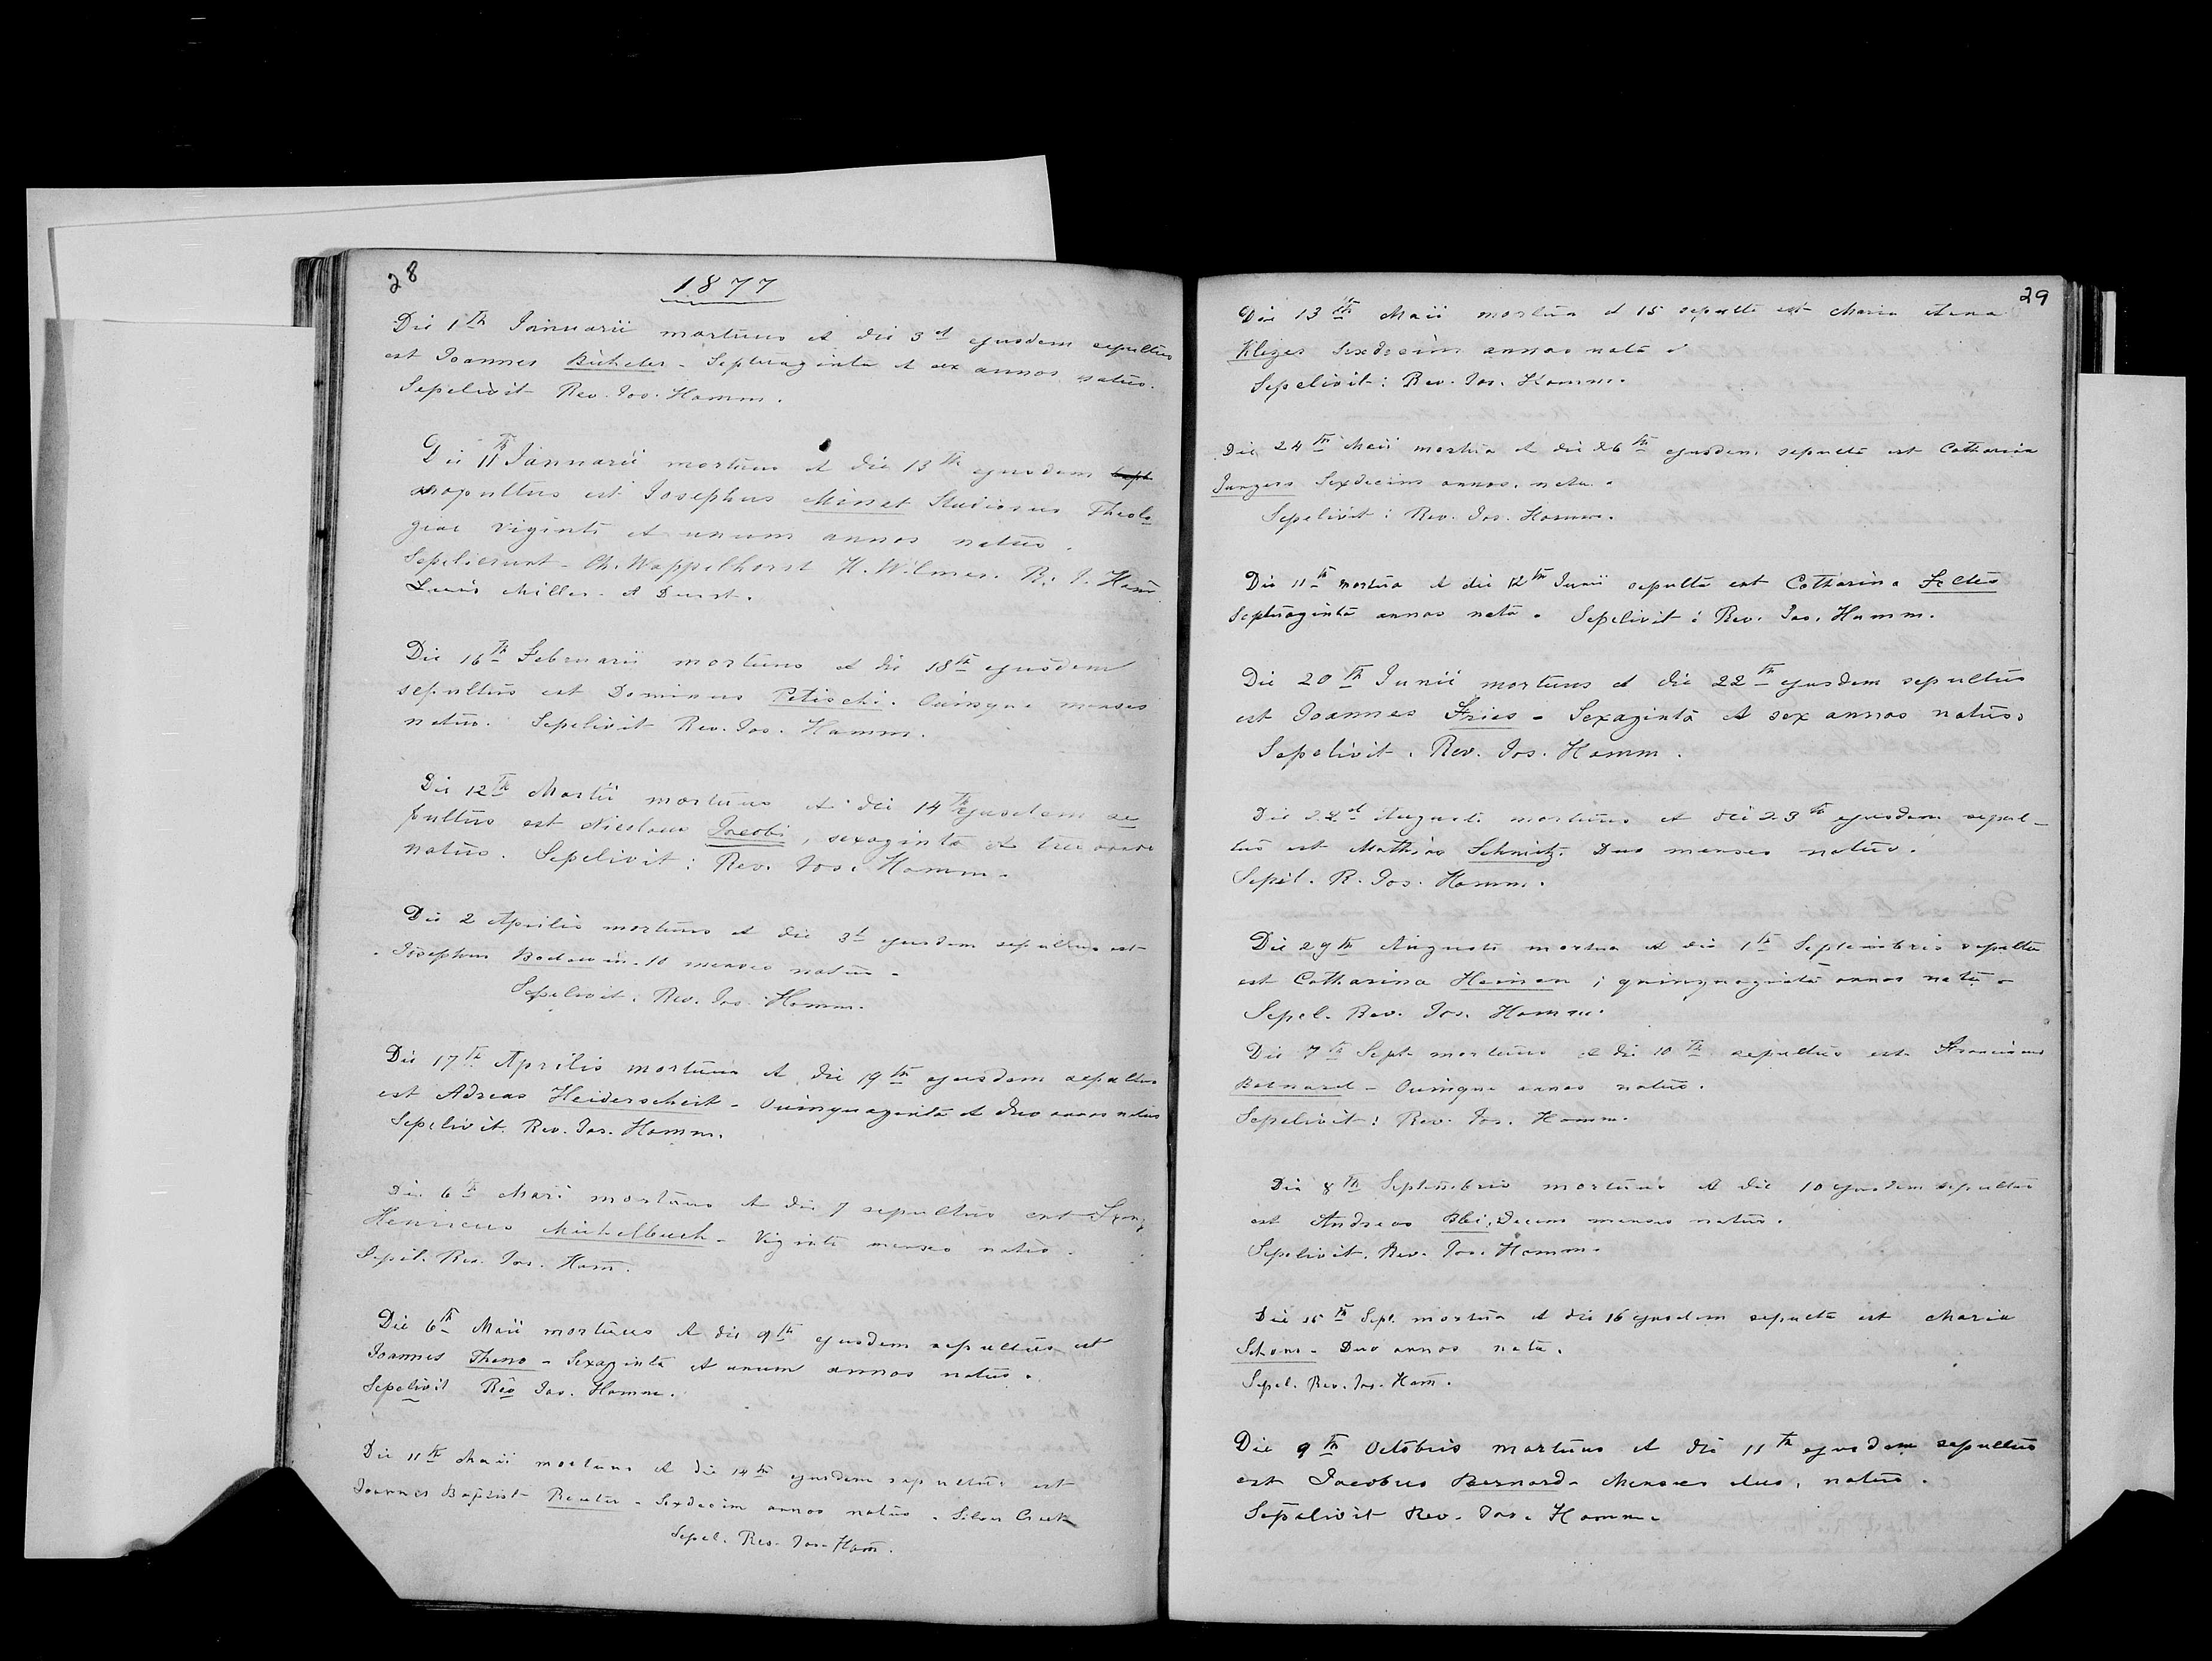 28
1877
Die 1th Januarii mortuus et die 3d ejusdem sepultus
est Joannes Bücheler - Septuaginta et sex annos natus.
Sepelivit Rev. Jos. Hamm.
Die 11th Januarii mortuus et die 13th ejusdem
sepultus est Josephus Meinet Studiosus Theolo
giae viginti et unum annos natus.
Sepelierunt - Ch. Wappelhorst H. Wilmes. R. J. Ham
Louis Miller - A Durst.
Die 16th Februarii mortuus et die 18th ejusdem
sepultus est Dominus Petischi. Quinque menses
natus. Sepelivit Rev. Jos. Hamm.
Die 12th Martii mortuus et die 14th ejusdem se
pultus est Nicolaus Jacobi, sexaginta et tres annos
natus. Sepelivit: Rev. Jos. Hamm.
Die 2 Aprilis mortuus et die 3d ejusdem sepultus est
Josephus Bodewin. 10 menses natus.
Sepelivit. Rev. Jos. Hamm.
Die 17th Aprilis mortuus et die 19th ejusdem sepultus
est Adreas Heiderscheit - Quinquaginta et duo annos natus
Sepelivit. Rev. Jos. Hamm.
Die 6th Maii mortuus et die 7 sepultus est
Henricus Michelbuch - Viginti menses natus.
Sepil. Rev. Jos. Ham.
Die 6th Maii mortuus et die 9th ejusdem sepultus est
Joannes Theno - Sexaginta et unum annos natus.
Sepelivit Rev Jos. Hamm.
Die 11th Maii mortuus et die 14th ejusdem sepultus est
Joannes Baptist Reuter - Sexdecim annos natus. Silver Creek
Sepel. Rev. Jos. Ham.
29
Die 13th Maii mortua et 15 sepulta est Maria Anna
Klizes Sexdecim annos nata.
Sepelivit: Rev. Jos. Hamm.
Die 24th Maii mortua et die 26th ejusdem sepulta est Catharina
Jungers Sexdecim annos nata.
Sepelivit: Rev. Jos. Hamm.
Die 11th mortua et die 12th Junii sepulta est Catharina Feltes
Septuaginta annos nata. Sepelivit: Rev. Jos. Hamm.
Die 20th Junii mortuus et die 22th ejusdem sepultus
est Joannes Fries - Sexaginta et sex annos natus.
Sepelivit. Rev. Jos. Hamm.
Die 22d Augusti mortuus et die 23th ejusdem sepul-
tus est Mathias Schmitz. Duo menses natus.
Sepil. R. Jos. Hamm.
Die 29th Augusti mortua et die 1th Septembris sepulta
est Catharina Heinen; quinquaginta annos nata
Sepel. Rev. Jos. Hamm.
Die 7th Sept. mortuus et die 10th sepultus est Franciscus
Bernard - Quinque annos natus.
Sepelivit: Rev. Jos. Hamm.
Die 8th Septembris mortuus et die 10 ejusdem sepultus
est Andreas Blei, Decem menses natus.
Sepelivit. Rev. Jos. Hamm.
Die 15th Sept. mortua et die 16 ejusdem sepulta est Maria
Schons - Duo annos nata.
Sepel. Rev. Jos. Ham.
Die 9th Octobris mortuus et die 11th ejusdem sepultus
est Jacobus Bernard - Menses duo, natus.
Sepelivit Rev. Jos. Hamm.